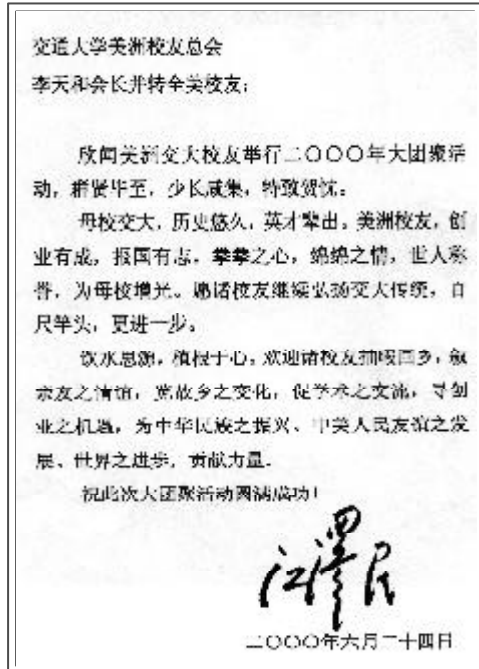 交通大学美洲校友总会
李天和会长并转全美校友：
欣闻美洲交大校友举行二〇〇〇年大团聚活
动，群贤毕至，少长咸集，特致贺忱。
母校交大，历史悠久，英才辈出。美洲校友，创
业有成，报国有志，拳拳之心，绵绵之情，世人称
誉，为母校增光。愿诸校友继续弘扬交大传统，百
尺竿头，更进一步。
饮水思源，植根于心。欢迎诸校友抽暇回乡，叙
亲友之情谊，览故乡之变化，促学术之交流，寻创
业之机遇，为中华民族之振兴、中美人民友谊之发
展、世界之进步，贡献力量。
祝此次大团聚活动圆满成功！
江泽民
二〇〇〇年六月二十四日